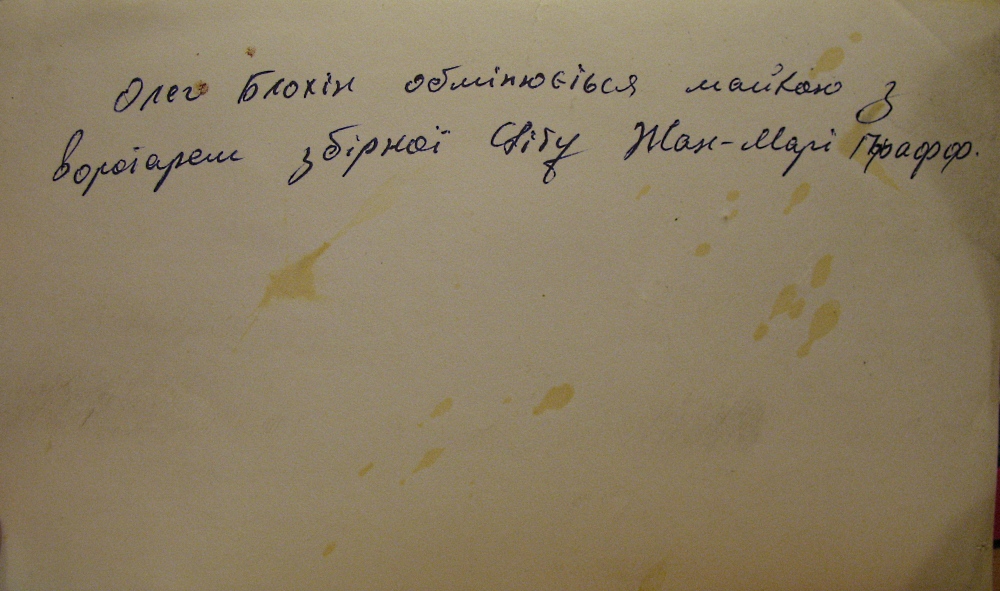 Олег Блохін обмінюється майкою з
воротарем збірної Світу Жан-Марі Пфафф.